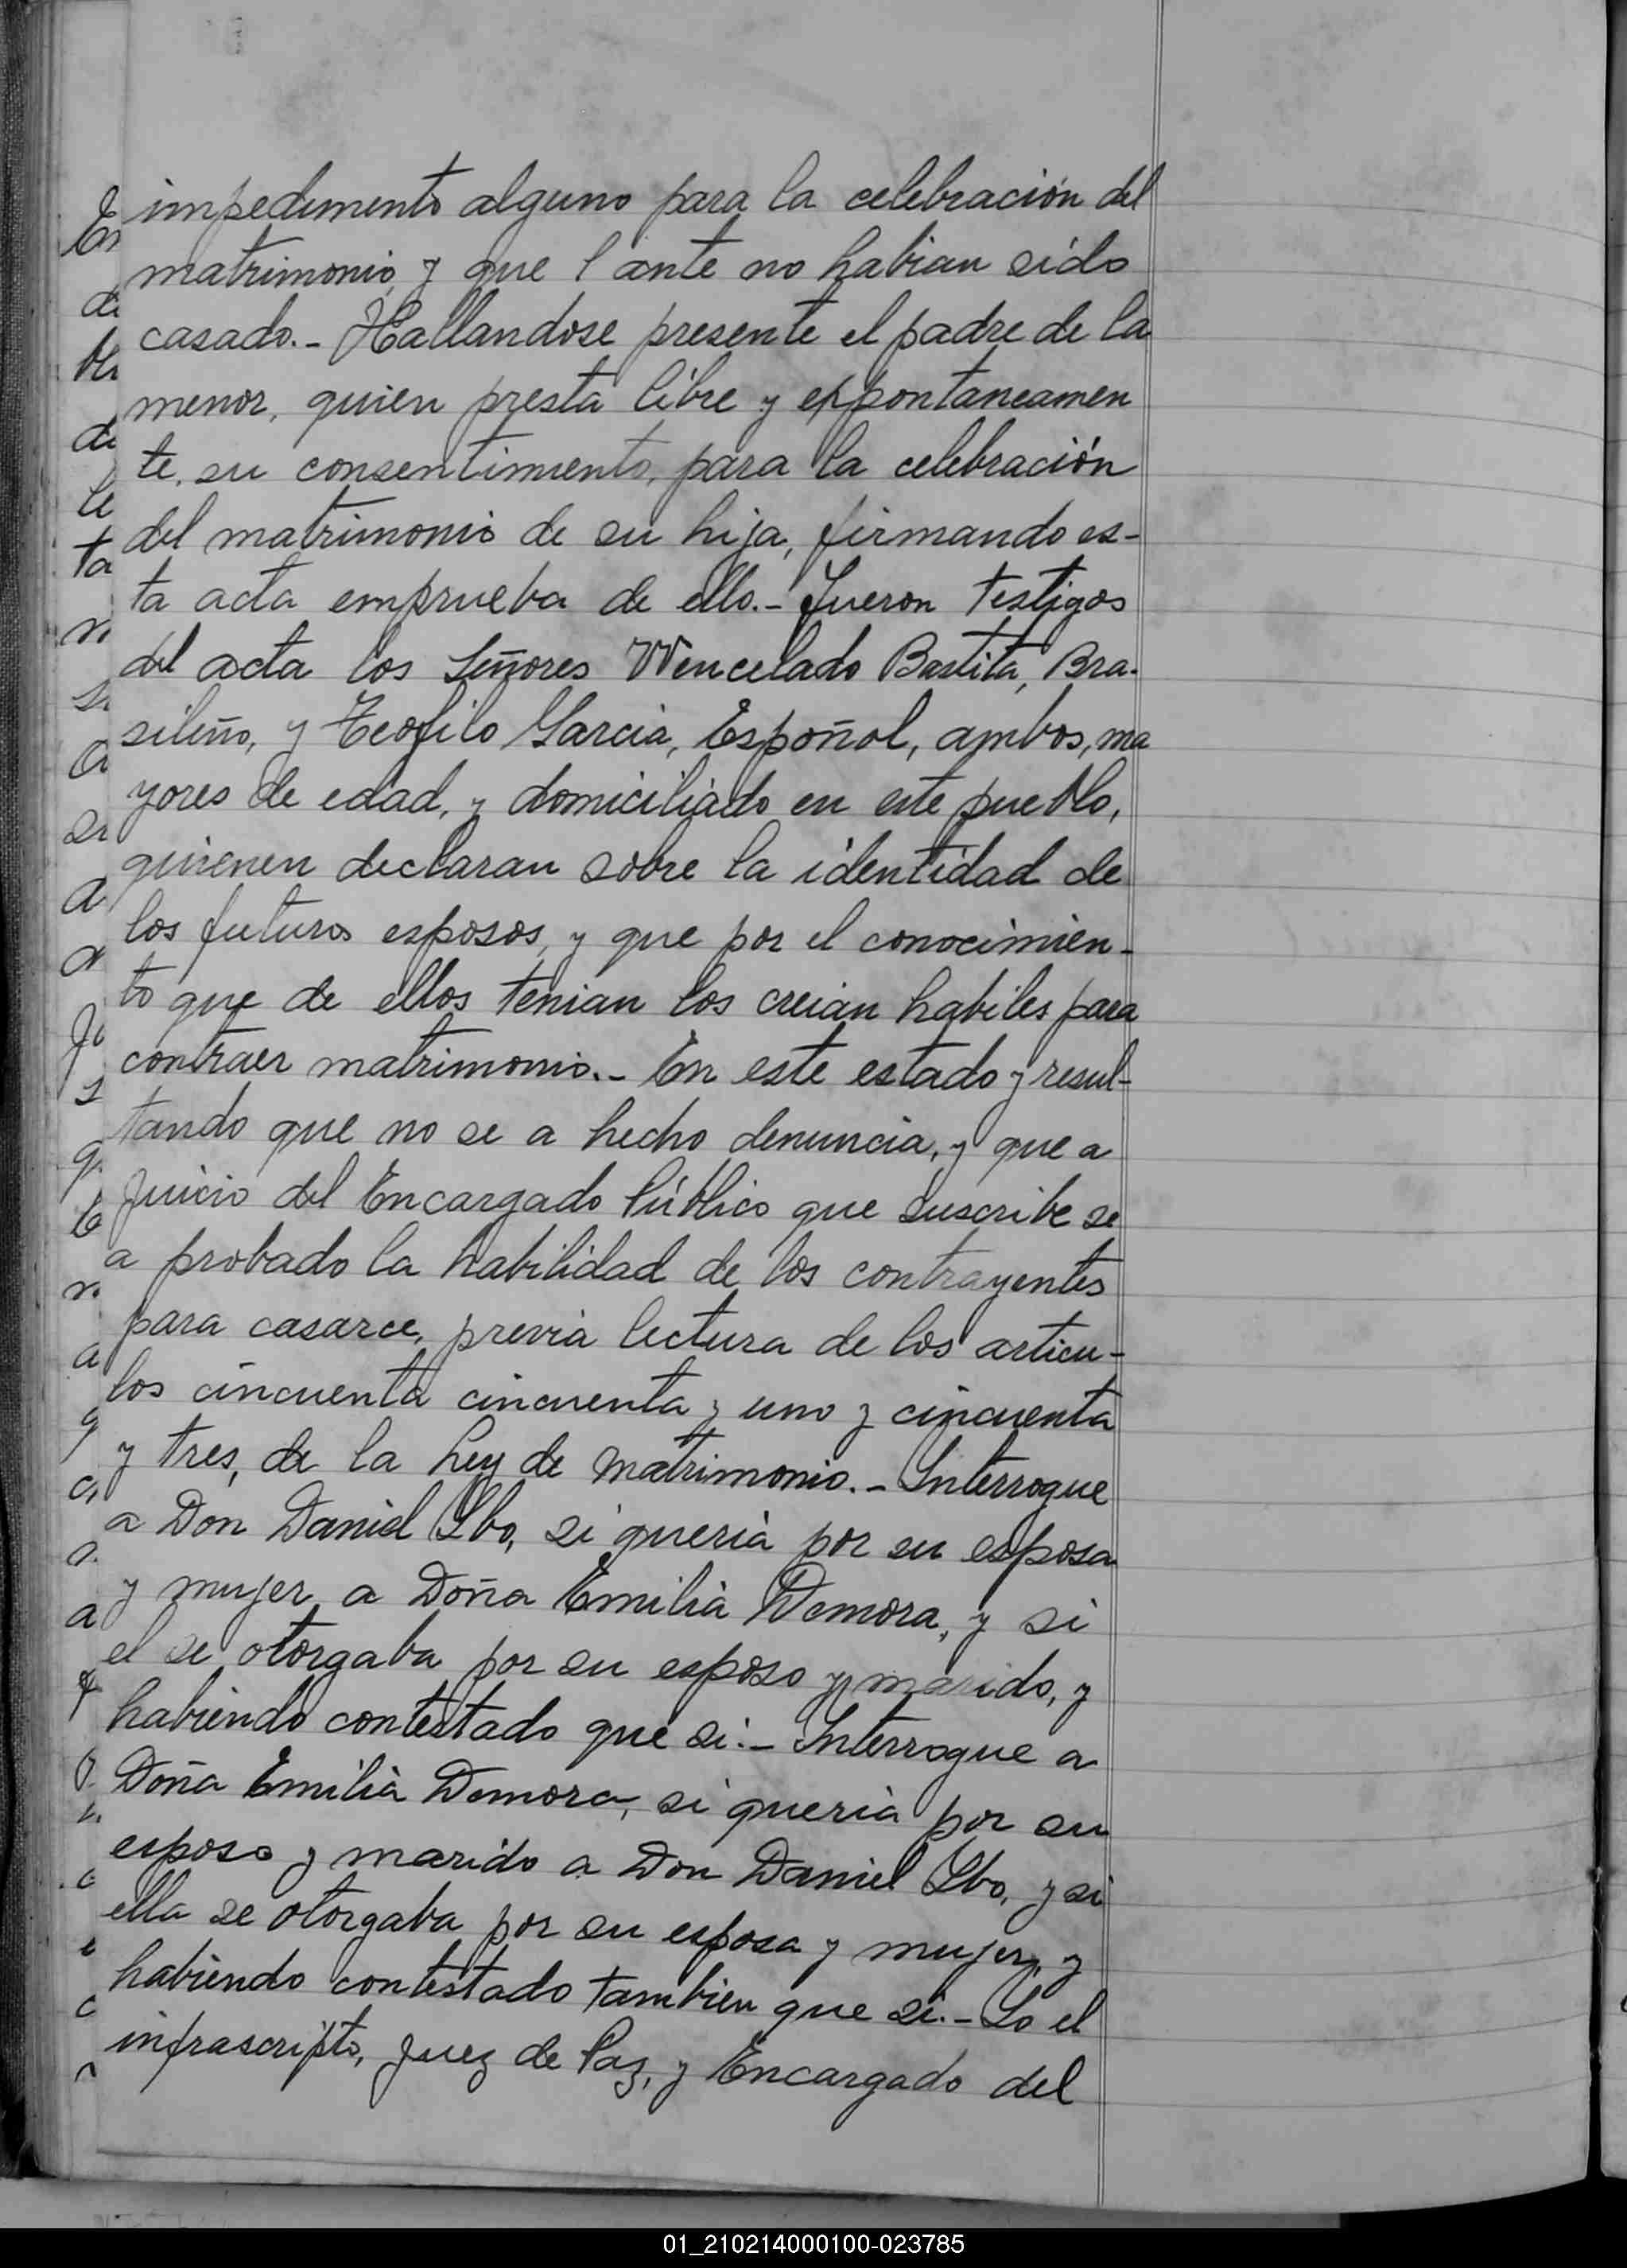 impedimento alguno para la celebración del
matrimonio, y que l ante no habian sido
casado.- Hallandose presente el padre de la
menor, quien presta libre y esppontaneamen
te, su consentimiento, para la celebración
del matrimonio de su hija, firmando es-
ta acta emprueba de ello.- fueron testigos
del acta los Señores Wencelado Bastita, Bra-
sileño, y Teofilo Garcia, Español, ambos, ma
yores de edad, y domiciliado en este pueblo,
quienen declaran sobre la identidad de
los futuros esposos, y que por el conocimien-
to que de ellos tenian los creian habiles para
contraer matrimonio.- En este estado y resul-
tando que no se a hecho denuncia, y que a
Juicio del Encargado Público que suscribe se
a probado la habilidad de los contrayentes
para casarce, previa lectura de los articu-
los cincuenta cincuenta y uno y cincuenta
y tres, de la Ley de Matrimonio.- Interrogue
a Don Daniel, si queria por su esposa
y mujer a Doña Emilia Demora, y si
el se otorgaba por su esposo y marido, y
habiendo contestado que si.- Interrogue a
Doña Emilia Demora, si queria por su
esposo y marido a Don Daniel, y si
ella se otorgaba por su esposa y mujer, y
habiendo contestado tambien que si.- Yo el
infrascripto, Juez de Paz, y Encargado del
01_210214000100-023785